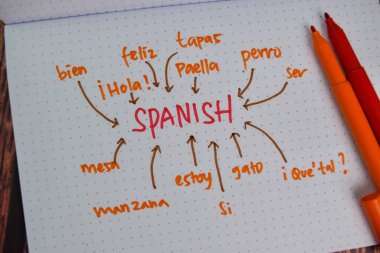 tapas
feliz
perro
bien
¡Hola!
Paella
ser
SPANISH
mesa
estoy
gato
¡Qué tal?
manzana
Si